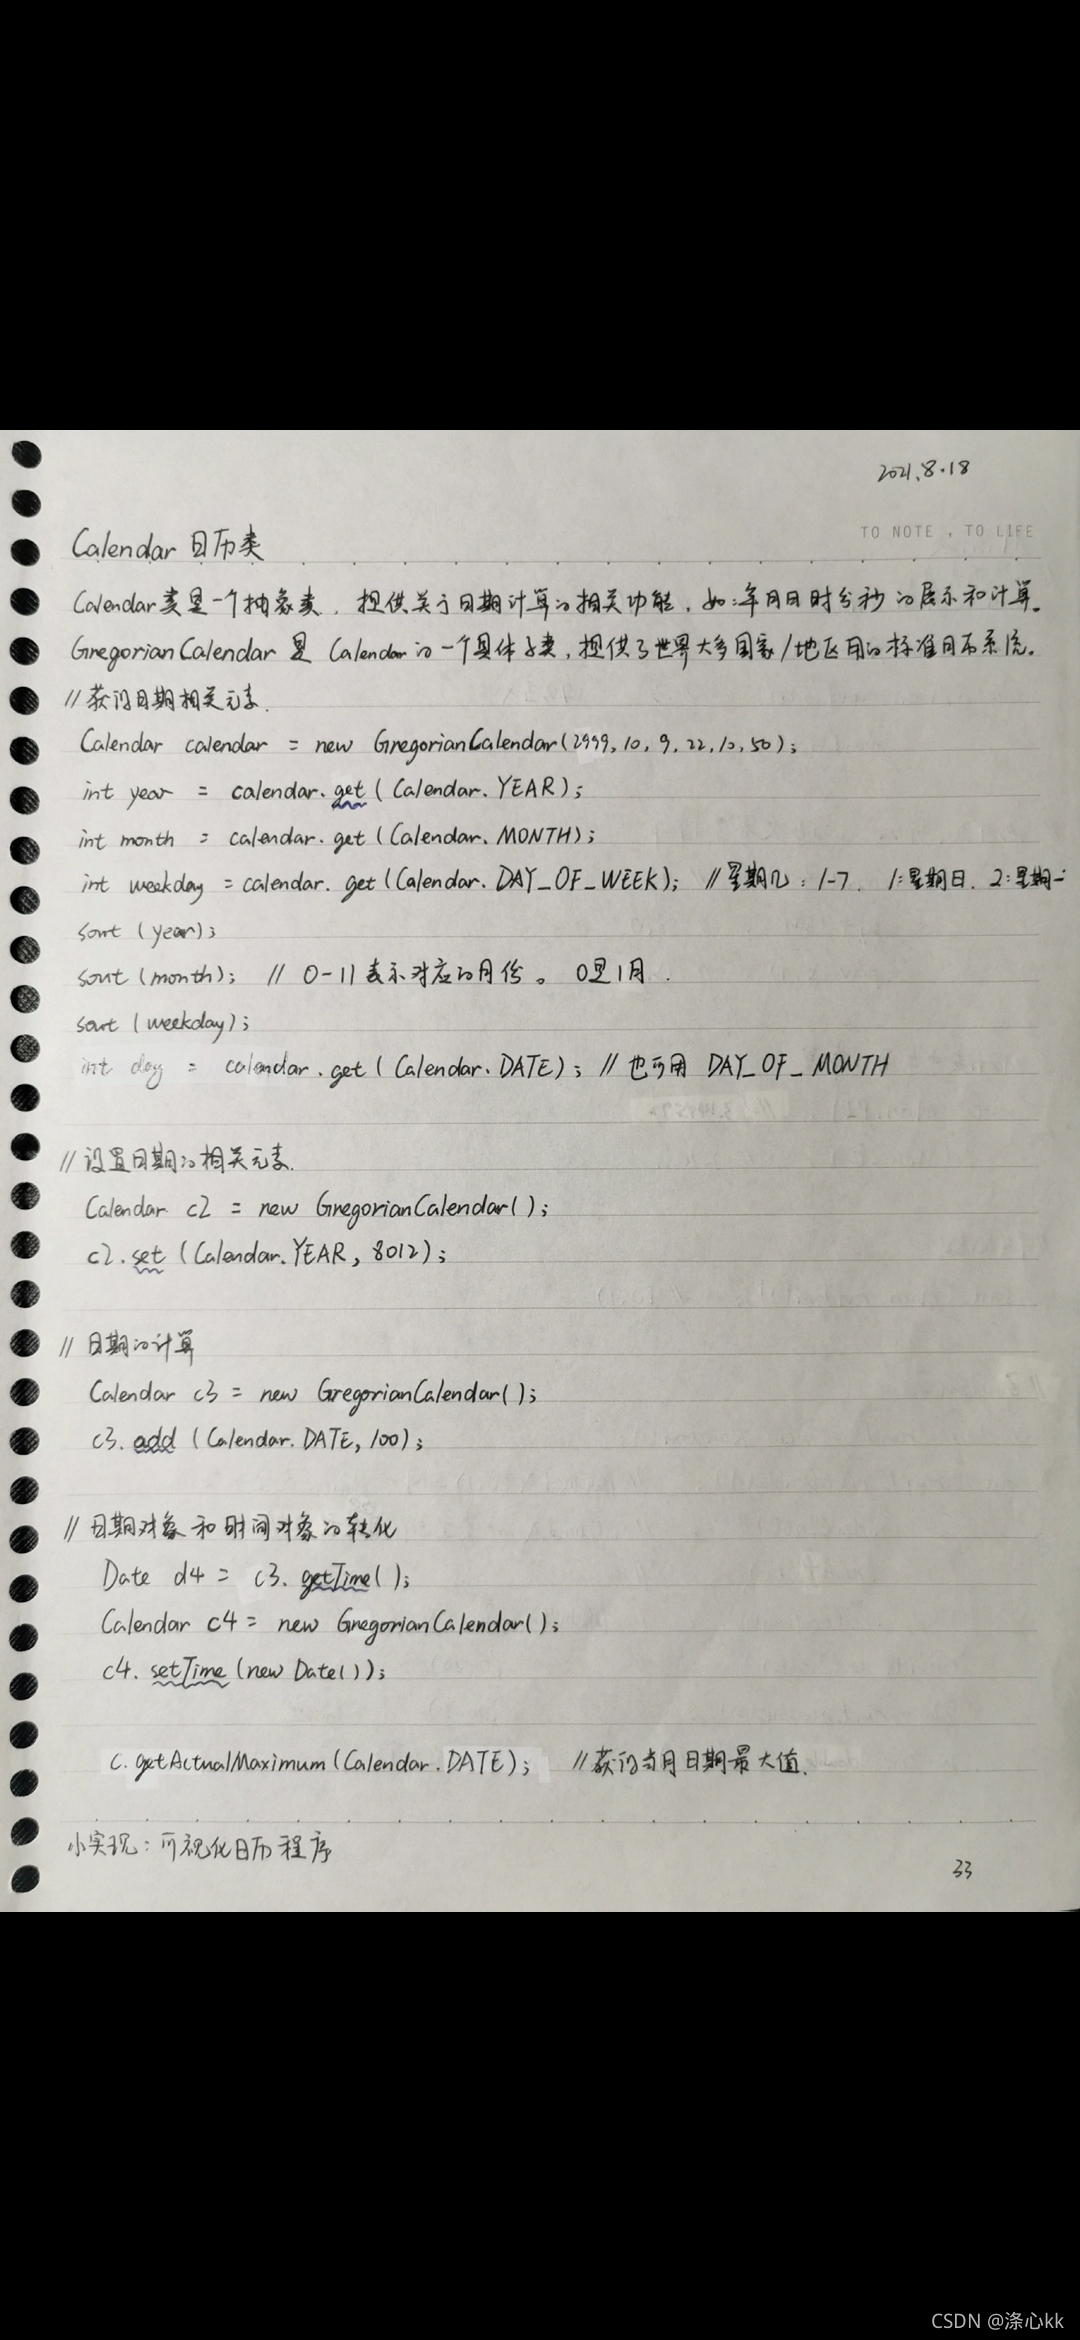 2021.8.18
TO NOTE , TO LIFE
Calendar 日历类
Calendar类是一个抽象类，提供关于日期计算的相关功能，如:年月日时分秒的展示和计算。
GregorianCalendar 是 Calendar的一个具体子类，提供了世界大多国家/地区用的标准日历系统。
// 获得日期相关元素.
Calendar calendar = new GregorianCalendar(2999, 10, 9, 22, 10, 50);
int year = calendar.get(Calendar.YEAR);
int month = calendar.get(Calendar.MONTH);
int weekday = calendar.get(Calendar.DAY_OF_WEEK); // 星期几: 1-7. 1:星期日. 2:星期一
sout (year);
sout (month); // 0-11表示对应的月份。 0是1月.
sout (weekday);
int day = calendar.get(Calendar.DATE); // 也可用 DAY_OF_MONTH
// 设置日期的相关元素.
Calendar c2 = new GregorianCalendar();
c2.set (Calendar.YEAR, 8012);
// 日期的计算
Calendar c3 = new GregorianCalendar();
c3.add (Calendar.DATE, 100);
// 日期对象和时间对象的转化
Date d4 = c3.getTime();
Calendar c4 = new GregorianCalendar();
c4.setTime(new Date());
c.getActualMaximum(Calendar.DATE); // 获得当月日期最大值.
小实现: 可视化日历程序
33
CSDN @涤心kk